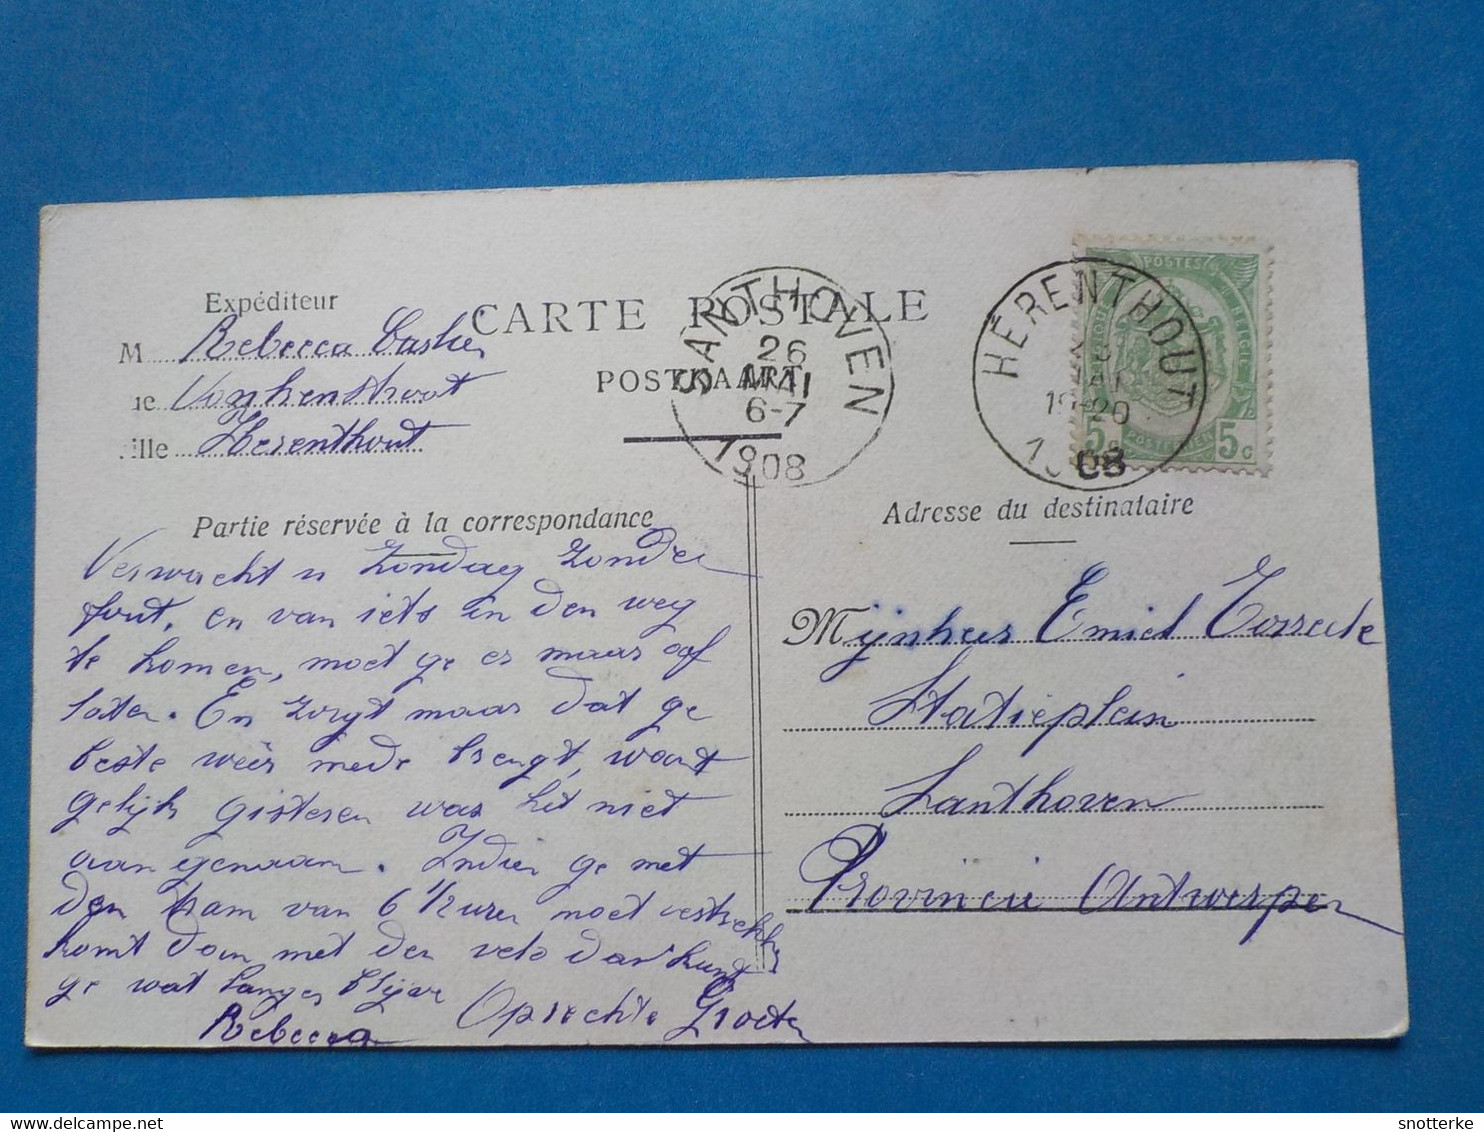 Expéditeur
CARTE POSTALE
POSTKAART
M Rebecca
ue
ille Herenthout
SANTHOVEN
26
MAI
6-7
1908
HERENTHOUT
19-20
08
POSTES
BELGIE
5
POSTERIJEN
5c
Partie réservée à la correspondance
Adresse du destinataire
Verwacht u Zondag zonder
fout, en van iets in den weg
te komen, moet ge er maar oof
laten. En zorgt maar dat ge
beste weer mede brengt, want
gelijk gisteren was het niet
aangenaam. Indien ge met
den tram van 6 1/2 uren moet
komt dan met den velo dan kund
ge wat langer blijven
Oprechte Groeten
Rebecca
Mijnheer Emiel
Statieplein
Santhoven
Provincie Antwerpen
snotterke